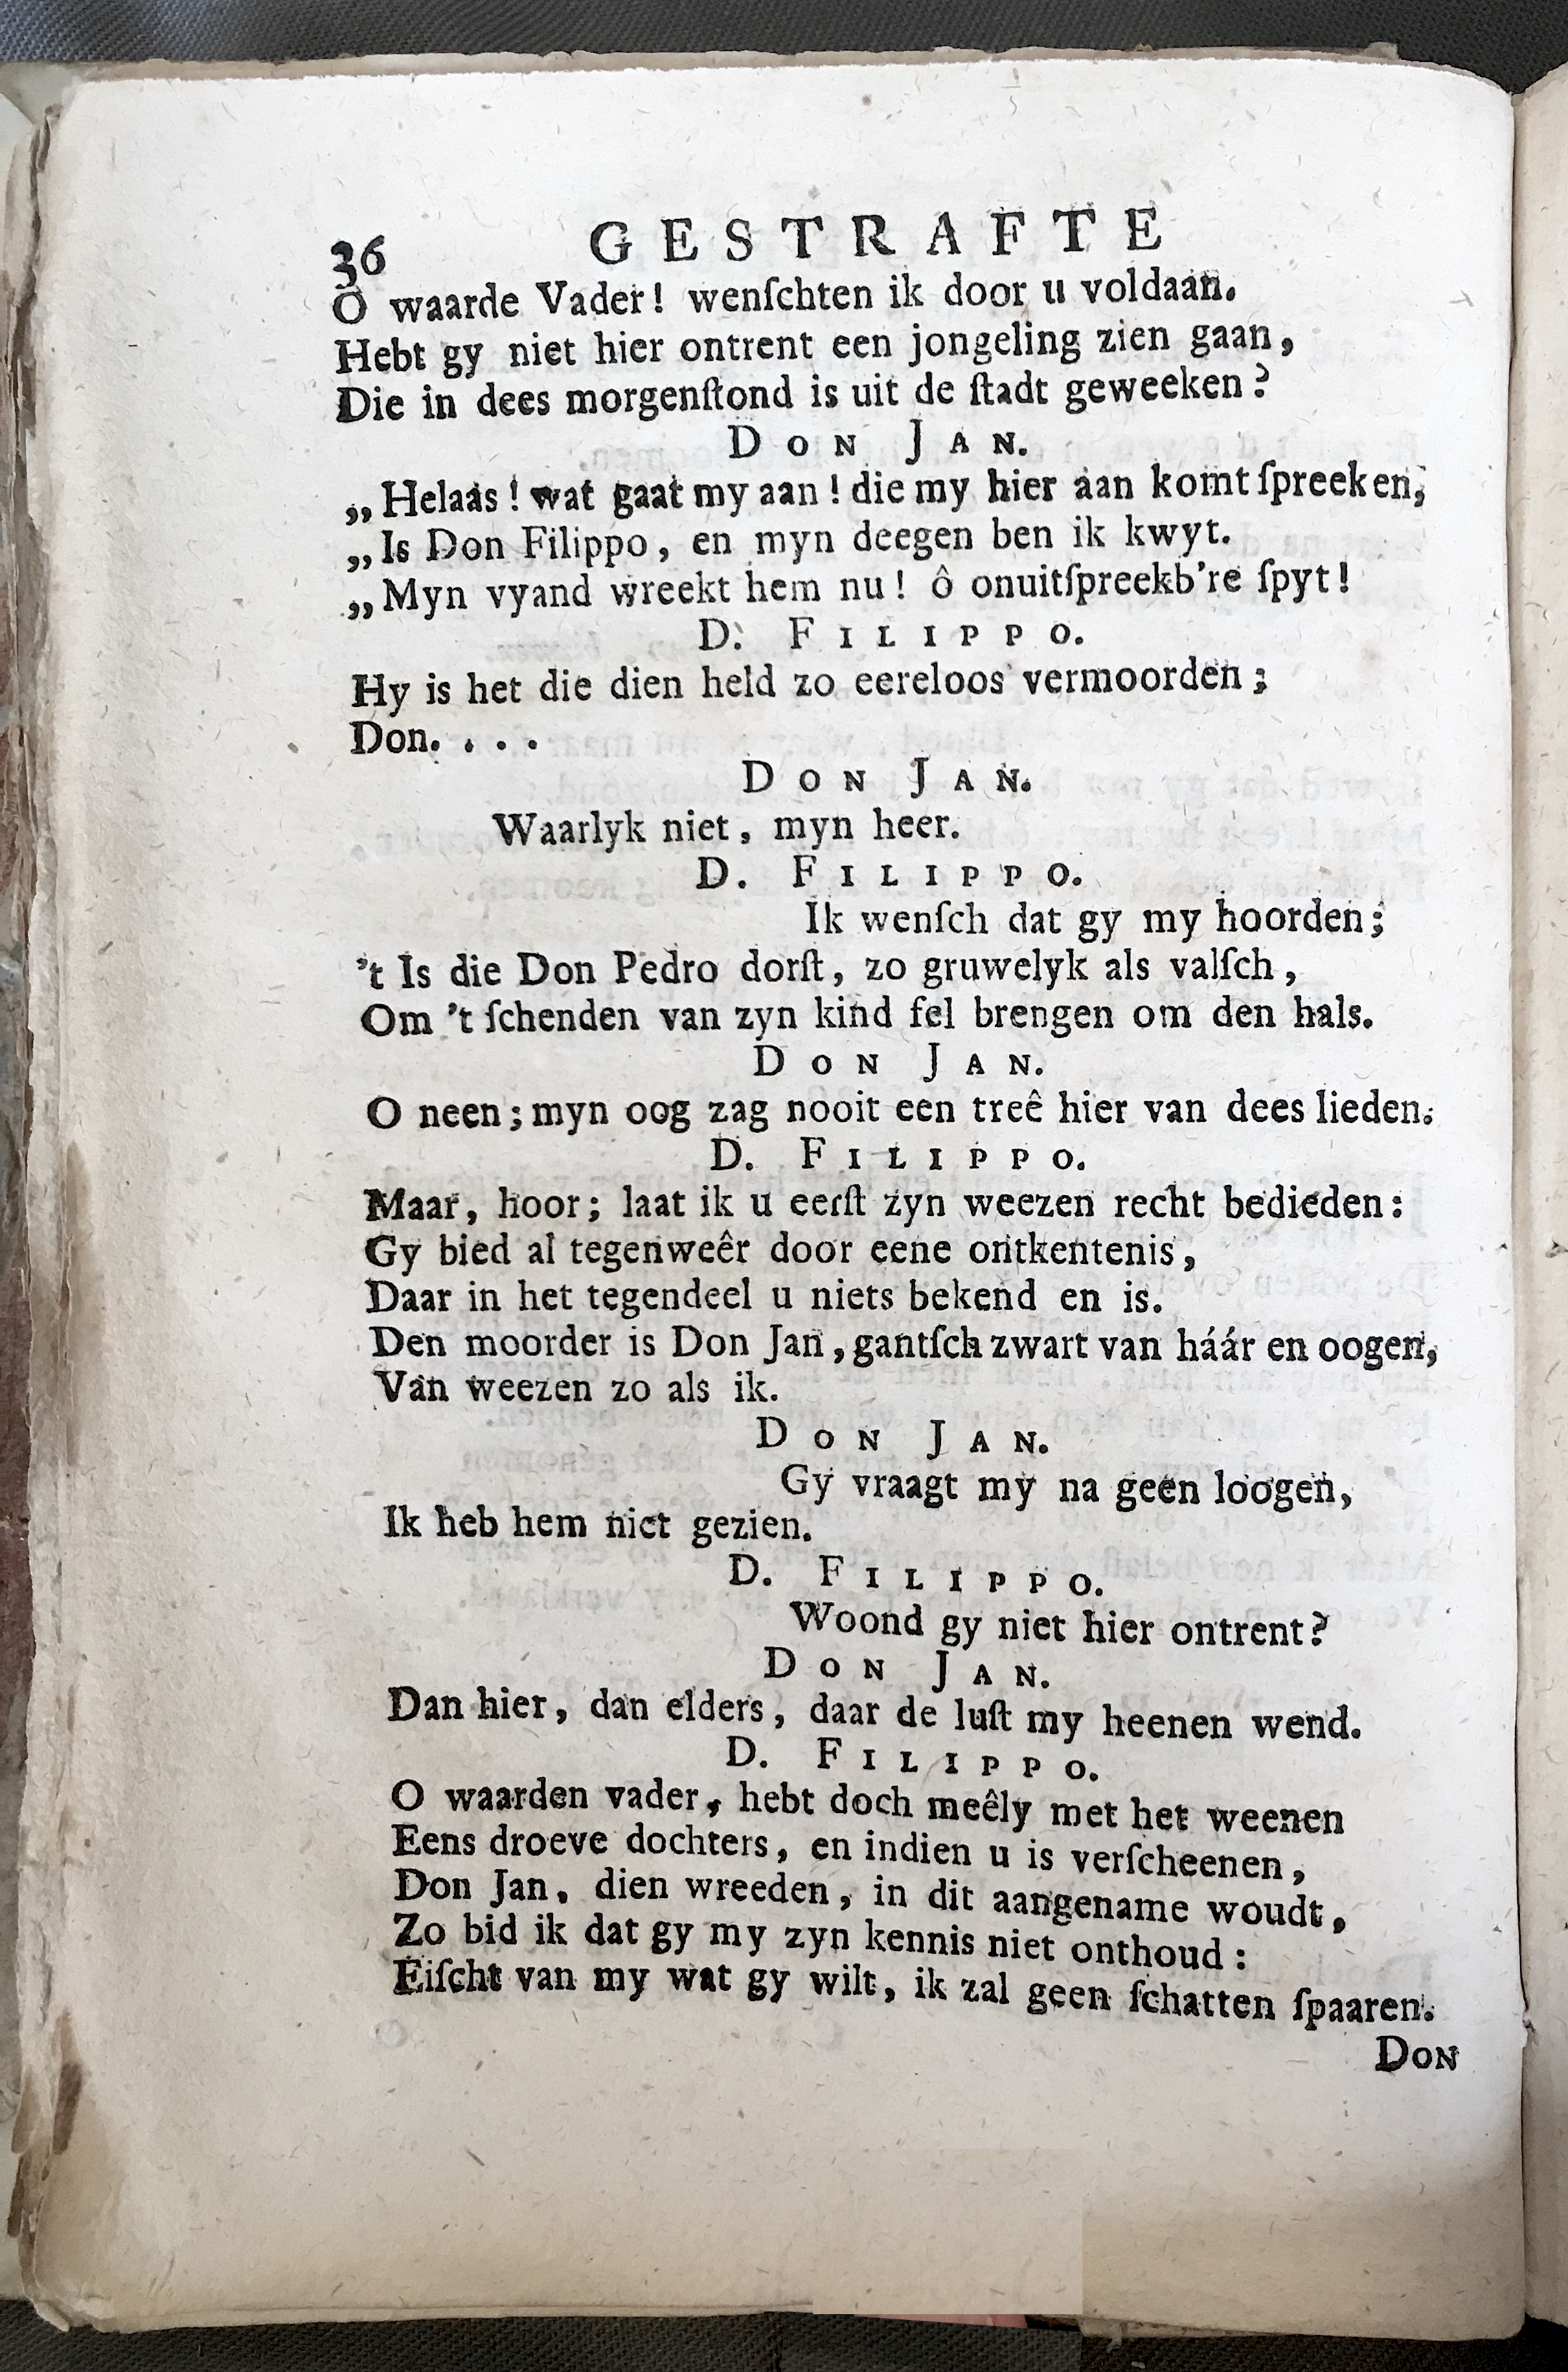 36 GESTRAFTE
O waarde Vader! wenſchten ik door u voldaan.
Hebt gy niet hier ontrent een jongeling zien gaan,
Die in dees morgenſtond is uit de ſtadt geweeken?
DON JAN.
„Helaas! wat gaat my aan! die my hier aan komt ſpreeken,
„Is Don Filippo, en myn deegen ben ik kwyt.
„Myn vyand wreekt hem nu! ô onuitſpreekb're ſpyt!
D. FILIPPO.
Hy is het die dien held zo eereloos vermoorden;
Don. . . .
DON JAN.
Waarlyk niet, myn heer.
D. FILIPPO.
Ik wenſch dat gy my hoorden;
't Is die Don Pedro dorſt, zo gruwelyk als valſch,
Om 't ſchenden van zyn kind fel brengen om den hals.
DON JAN.
O neen; myn oog zag nooit een treê hier van dees lieden.
D. FILIPPO.
Maar, hoor; laat ik u eerſt zyn weezen recht bedieden:
Gy bied al tegenweêr door eene ontkentenis,
Daar in het tegendeel u niets bekend en is.
Den moorder is Don Jan, gantſch zwart van háár en oogen,
Van weezen zo als ik.
DON JAN.
Gy vraagt my na geen loogen,
Ik heb hem niet gezien.
D. FILIPPO.
Woond gy niet hier ontrent?
DON JAN.
Dan hier, dan elders, daar de luſt my heenen wend.
D. FILIPPO.
O waarden vader, hebt doch meêly met het weenen
Eens droeve dochters, en indien u is verſcheenen,
Don Jan, dien wreeden, in dit aangename woudt,
Zo bid ik dat gy my zyn kennis niet onthoud:
Eiſcht van my wat gy wilt, ik zal geen ſchatten ſpaaren.
DON